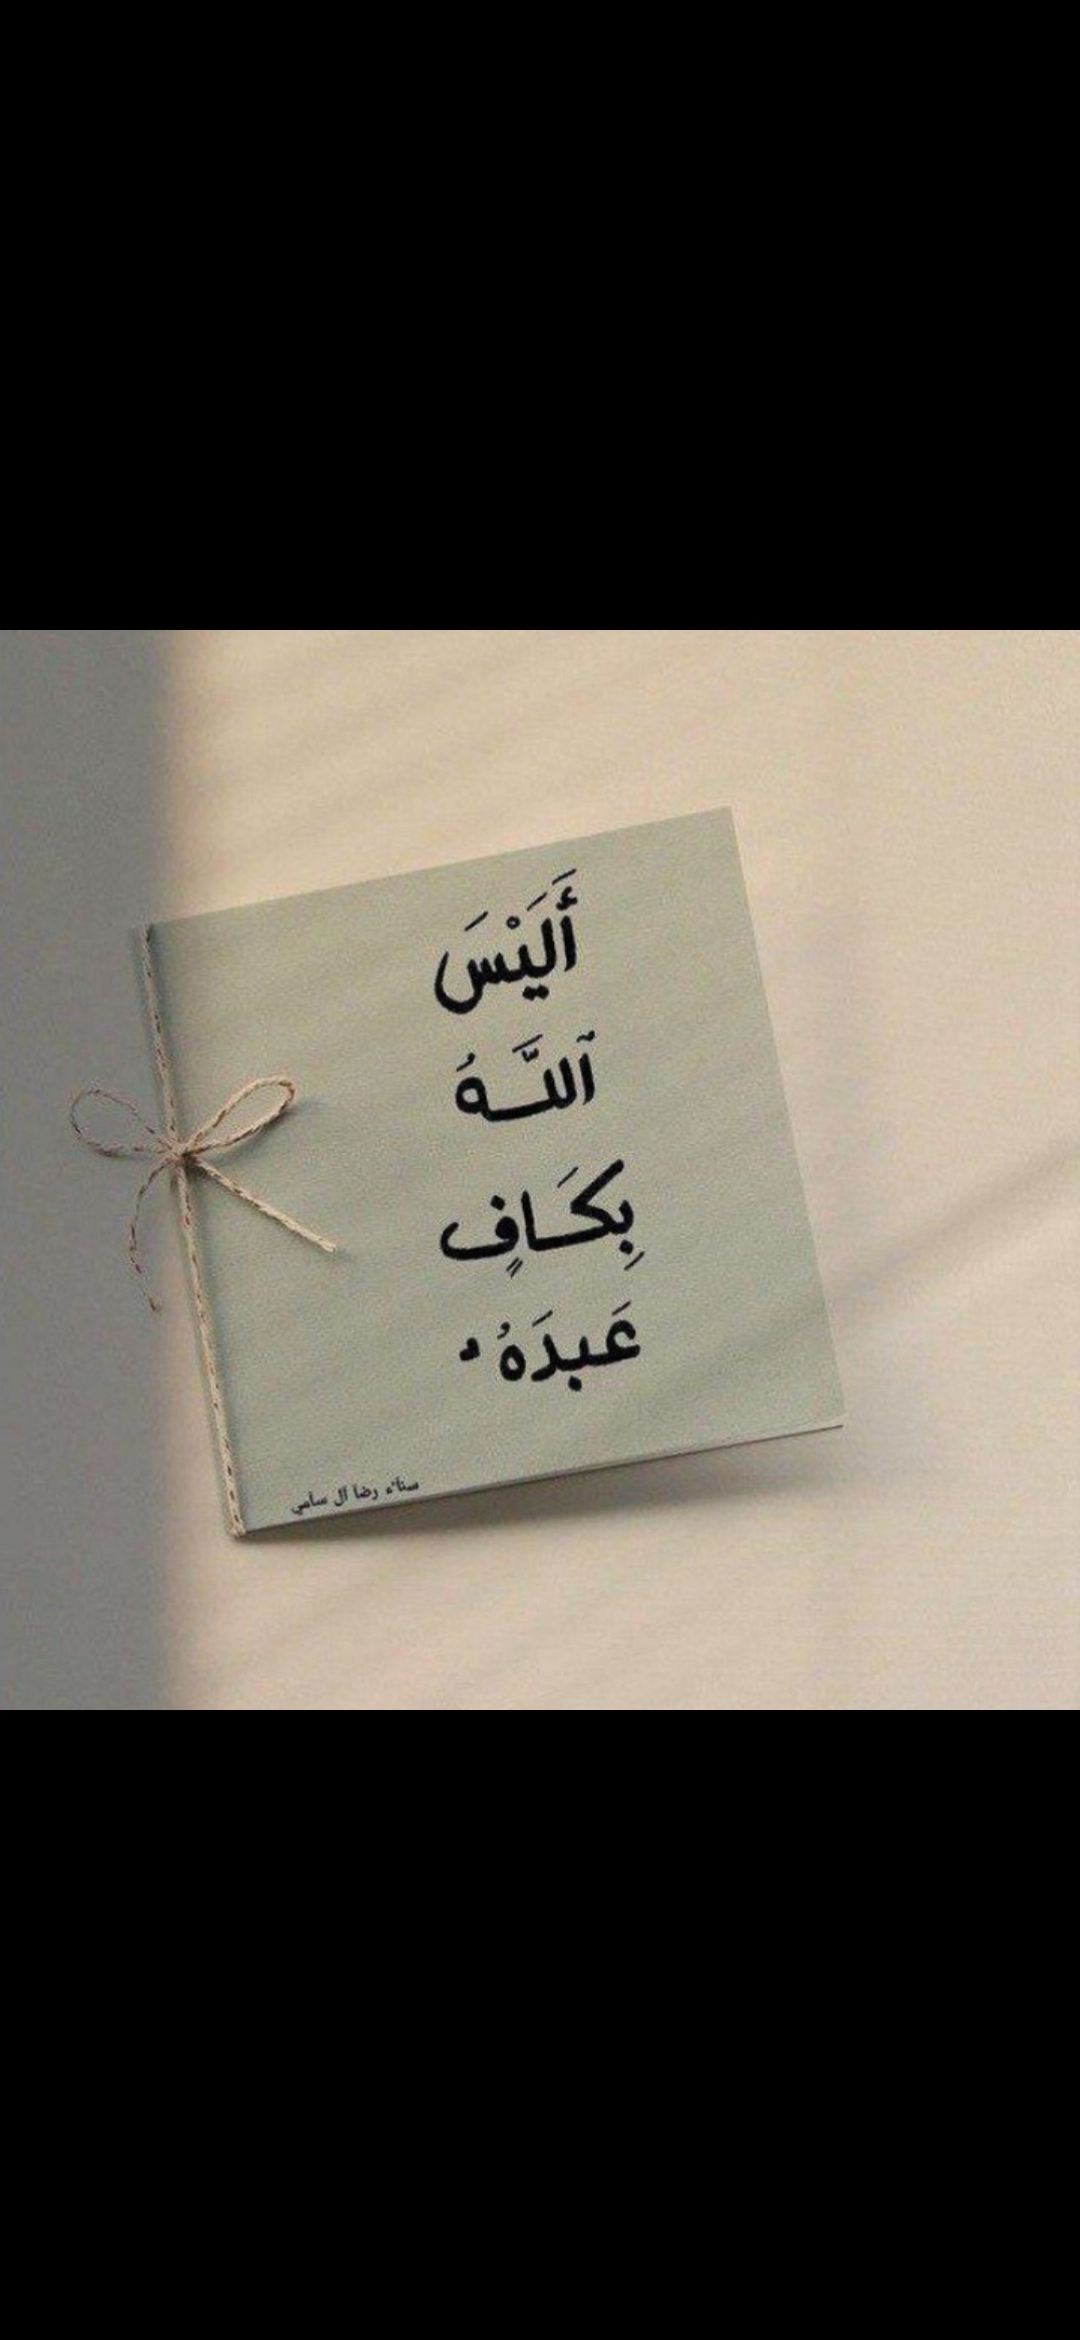 أَلَيْسَ
ٱللَّـهُ
بِكَـافٍ
عَبدَهُ ۥ
سناء رضا آل سامي